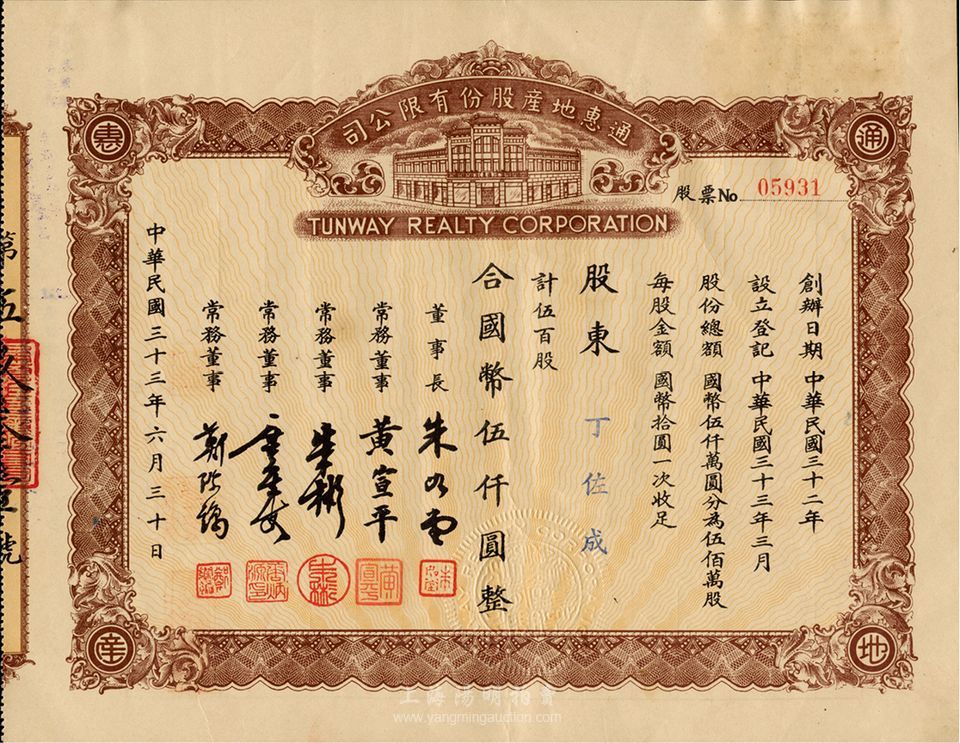 通惠地產股份有限公司
TUNWAY REALTY CORPORATION
通
惠
地
產
股票No 05931
創辦日期 中華民國三十二年
設立登記 中華民國三十三年三月
股份總額 國幣伍仟萬圓分為伍佰萬股
每股金額 國幣拾圓一次收足
股東 丁佐成
計伍百股
合國幣伍仟圓整
董事長 朱
常務董事 黃宣平
常務董事 朱彬
常務董事
常務董事 鄭
中華民國三十三年六月三十日
第伍 號
上海陽明拍賣
www.yangmingauction.com